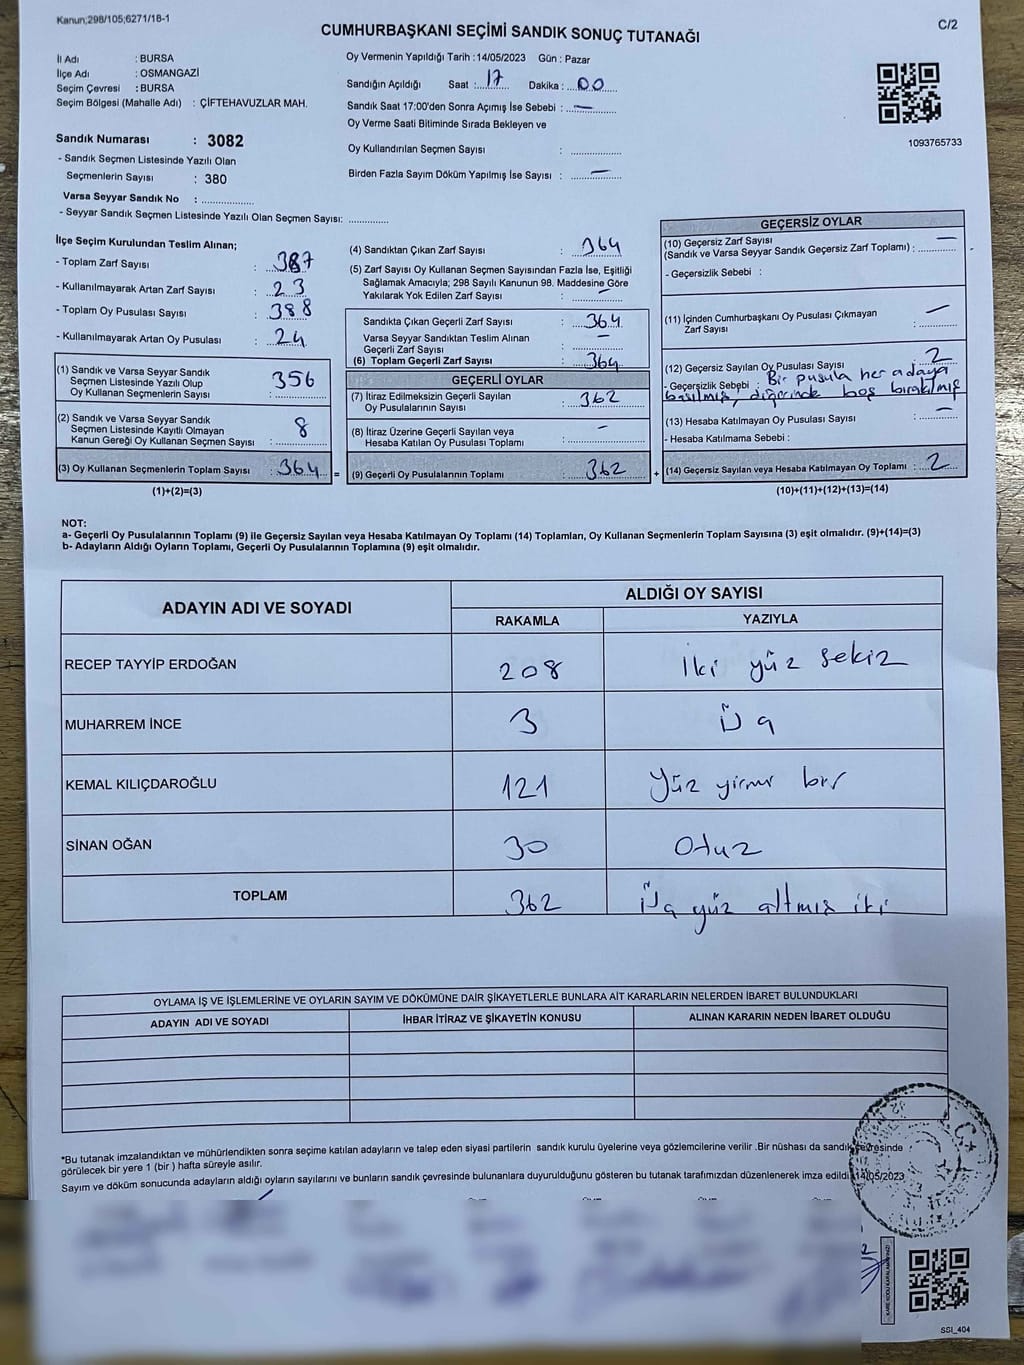 Kanun;298/105;6271/18-1
C/2
CUMHURBAŞKANI SEÇİMİ SANDIK SONUÇ TUTANAĞI
İl Adı : BURSA
İlçe Adı : OSMANGAZİ
Seçim Çevresi : BURSA
Seçim Bölgesi (Mahalle Adı) : ÇİFTEHAVUZLAR MAH.
Sandık Numarası : 3082
- Sandık Seçmen Listesinde Yazılı Olan
Seçmenlerin Sayısı : 380
Varsa Seyyar Sandık No : ..............
- Seyyar Sandık Seçmen Listesinde Yazılı Olan Seçmen Sayısı: ............
Oy Vermenin Yapıldığı Tarih :14/05/2023 Gün : Pazar
Sandığın Açıldığı Saat : 17 Dakika : 00
Sandık Saat 17:00'den Sonra Açımış İse Sebebi : —
Oy Verme Saati Bitiminde Sırada Bekleyen ve
Oy Kullandırılan Seçmen Sayısı : ..............
Birden Fazla Sayım Döküm Yapılmış İse Sayısı : —
1093765733
İlçe Seçim Kurulundan Teslim Alınan;
- Toplam Zarf Sayısı : 387
- Kullanılmayarak Artan Zarf Sayısı : 23
- Toplam Oy Pusulası Sayısı : 388
- Kullanılmayarak Artan Oy Pusulası : 24
(1) Sandık ve Varsa Seyyar Sandık
Seçmen Listesinde Yazılı Olup
Oy Kullanan Seçmenlerin Sayısı : 356
(2) Sandık ve Varsa Seyyar Sandık
Seçmen Listesinde Kayıtlı Olmayan
Kanun Gereği Oy Kullanan Seçmen Sayısı : 8
(3) Oy Kullanan Seçmenlerin Toplam Sayısı : 364 =
(1)+(2)=(3)
(4) Sandıktan Çıkan Zarf Sayısı : 364
(5) Zarf Sayısı Oy Kullanan Seçmen Sayısından Fazla İse, Eşitliği
Sağlamak Amacıyla; 298 Sayılı Kanunun 98. Maddesine Göre
Yakılarak Yok Edilen Zarf Sayısı : —
Sandıkta Çıkan Geçerli Zarf Sayısı : 364
Varsa Seyyar Sandıktan Teslim Alınan
Geçerli Zarf Sayısı : —
(6) Toplam Geçerli Zarf Sayısı : 364
GEÇERLİ OYLAR
(7) İtiraz Edilmeksizin Geçerli Sayılan
Oy Pusulalarının Sayısı : 362
(8) İtiraz Üzerine Geçerli Sayılan veya
Hesaba Katılan Oy Pusulası Toplamı : -
(9) Geçerli Oy Pusulalarının Toplamı : 362 +
GEÇERSİZ OYLAR
(10) Geçersiz Zarf Sayısı —
(Sandık ve Varsa Seyyar Sandık Geçersiz Zarf Toplamı) : ............
- Geçersizlik Sebebi :
(11) İçinden Cumhurbaşkanı Oy Pusulası Çıkmayan
Zarf Sayısı : —
(12) Geçersiz Sayılan Oy Pusulası Sayısı 2
- Geçersizlik Sebebi : Bir pusula her adaya
basılmış, diğerinde boş bırakılmış
(13) Hesaba Katılmayan Oy Pusulası Sayısı : —
- Hesaba Katılmama Sebebi :
(14) Geçersiz Sayılan veya Hesaba Katılmayan Oy Toplamı : 2
(10)+(11)+(12)+(13)=(14)
NOT:
a- Geçerli Oy Pusulalarının Toplamı (9) ile Geçersiz Sayılan veya Hesaba Katılmayan Oy Toplamı (14) Toplamları, Oy Kullanan Seçmenlerin Toplam Sayısına (3) eşit olmalıdır. (9)+(14)=(3)
b- Adayların Aldığı Oyların Toplamı, Geçerli Oy Pusulalarının Toplamına (9) eşit olmalıdır.
ADAYIN ADI VE SOYADI
ALDIĞI OY SAYISI
RAKAMLA YAZIYLA
RECEP TAYYİP ERDOĞAN 208 İki yüz sekiz
MUHARREM İNCE 3 Üç
KEMAL KILIÇDAROĞLU 121 Yüz yirmi bir
SİNAN OĞAN 30 Otuz
TOPLAM 362 Üç yüz altmış iki
OYLAMA İŞ VE İŞLEMLERİNE VE OYLARIN SAYIM VE DÖKÜMÜNE DAİR ŞİKAYETLERLE BUNLARA AİT KARARLARIN NELERDEN İBARET BULUNDUKLARI
ADAYIN ADI VE SOYADI İHBAR İTİRAZ VE ŞİKAYETİN KONUSU ALINAN KARARIN NEDEN İBARET OLDUĞU
*Bu tutanak imzalandıktan ve mühürlendikten sonra seçime katılan adayların ve talep eden siyasi partilerin sandık kurulu üyelerine veya gözlemcilerine verilir .Bir nüshası da sandık çevresinde
görülecek bir yere 1 (bir ) hafta süreyle asılır.
Sayım ve döküm sonucunda adayların aldığı oyların sayılarını ve bunların sandık çevresinde bulunanlara duyurulduğunu gösteren bu tutanak tarafımızdan düzenlenerek imza edildi.14/05/2023
SSI_404